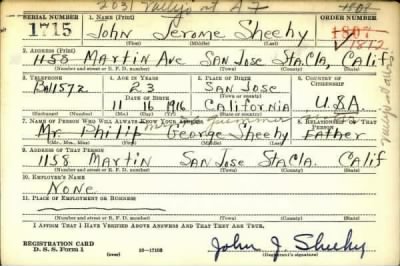 2031 Valleys at A F
SERIAL NUMBER 1. NAME (Print) ORDER NUMBER
1715 John Jerome Sheehy 1807
(First) (Middle) (Last) 1812
2. ADDRESS (Print)
1158 Martin Ave San Jose Sta Cla, Calif
(Number and street or R. F. D. number) (Town) (County) (State)
3. TELEPHONE 4. AGE IN YEARS 5. PLACE OF BIRTH 6. COUNTRY OF CITIZENSHIP
Bal 1572 23 San Jose
DATE OF BIRTH (Town or county)
11 16 1916 California U.S.A.
(Exchange) (Number) (Mo.) (Day) (Yr.) (State or country)
7. NAME OF PERSON WHO WILL ALWAYS KNOW YOUR ADDRESS 8. RELATIONSHIP OF THAT PERSON
Mr. Philip George Sheehy Father
(Mr., Mrs., Miss) (First) (Middle) (Last)
9. ADDRESS OF THAT PERSON
1158 Martin San Jose Sta Cla. Calif
(Number and street or R. F. D. number) (Town) (County) (State)
10. EMPLOYER'S NAME
None
11. PLACE OF EMPLOYMENT OR BUSINESS
(Number and street or R. F. D. number) (Town) (County) (State)
I AFFIRM THAT I HAVE VERIFIED ABOVE ANSWERS AND THAT THEY ARE TRUE.
REGISTRATION CARD
D. S. S. Form 1 (over) 16-17105 John J. Sheehy